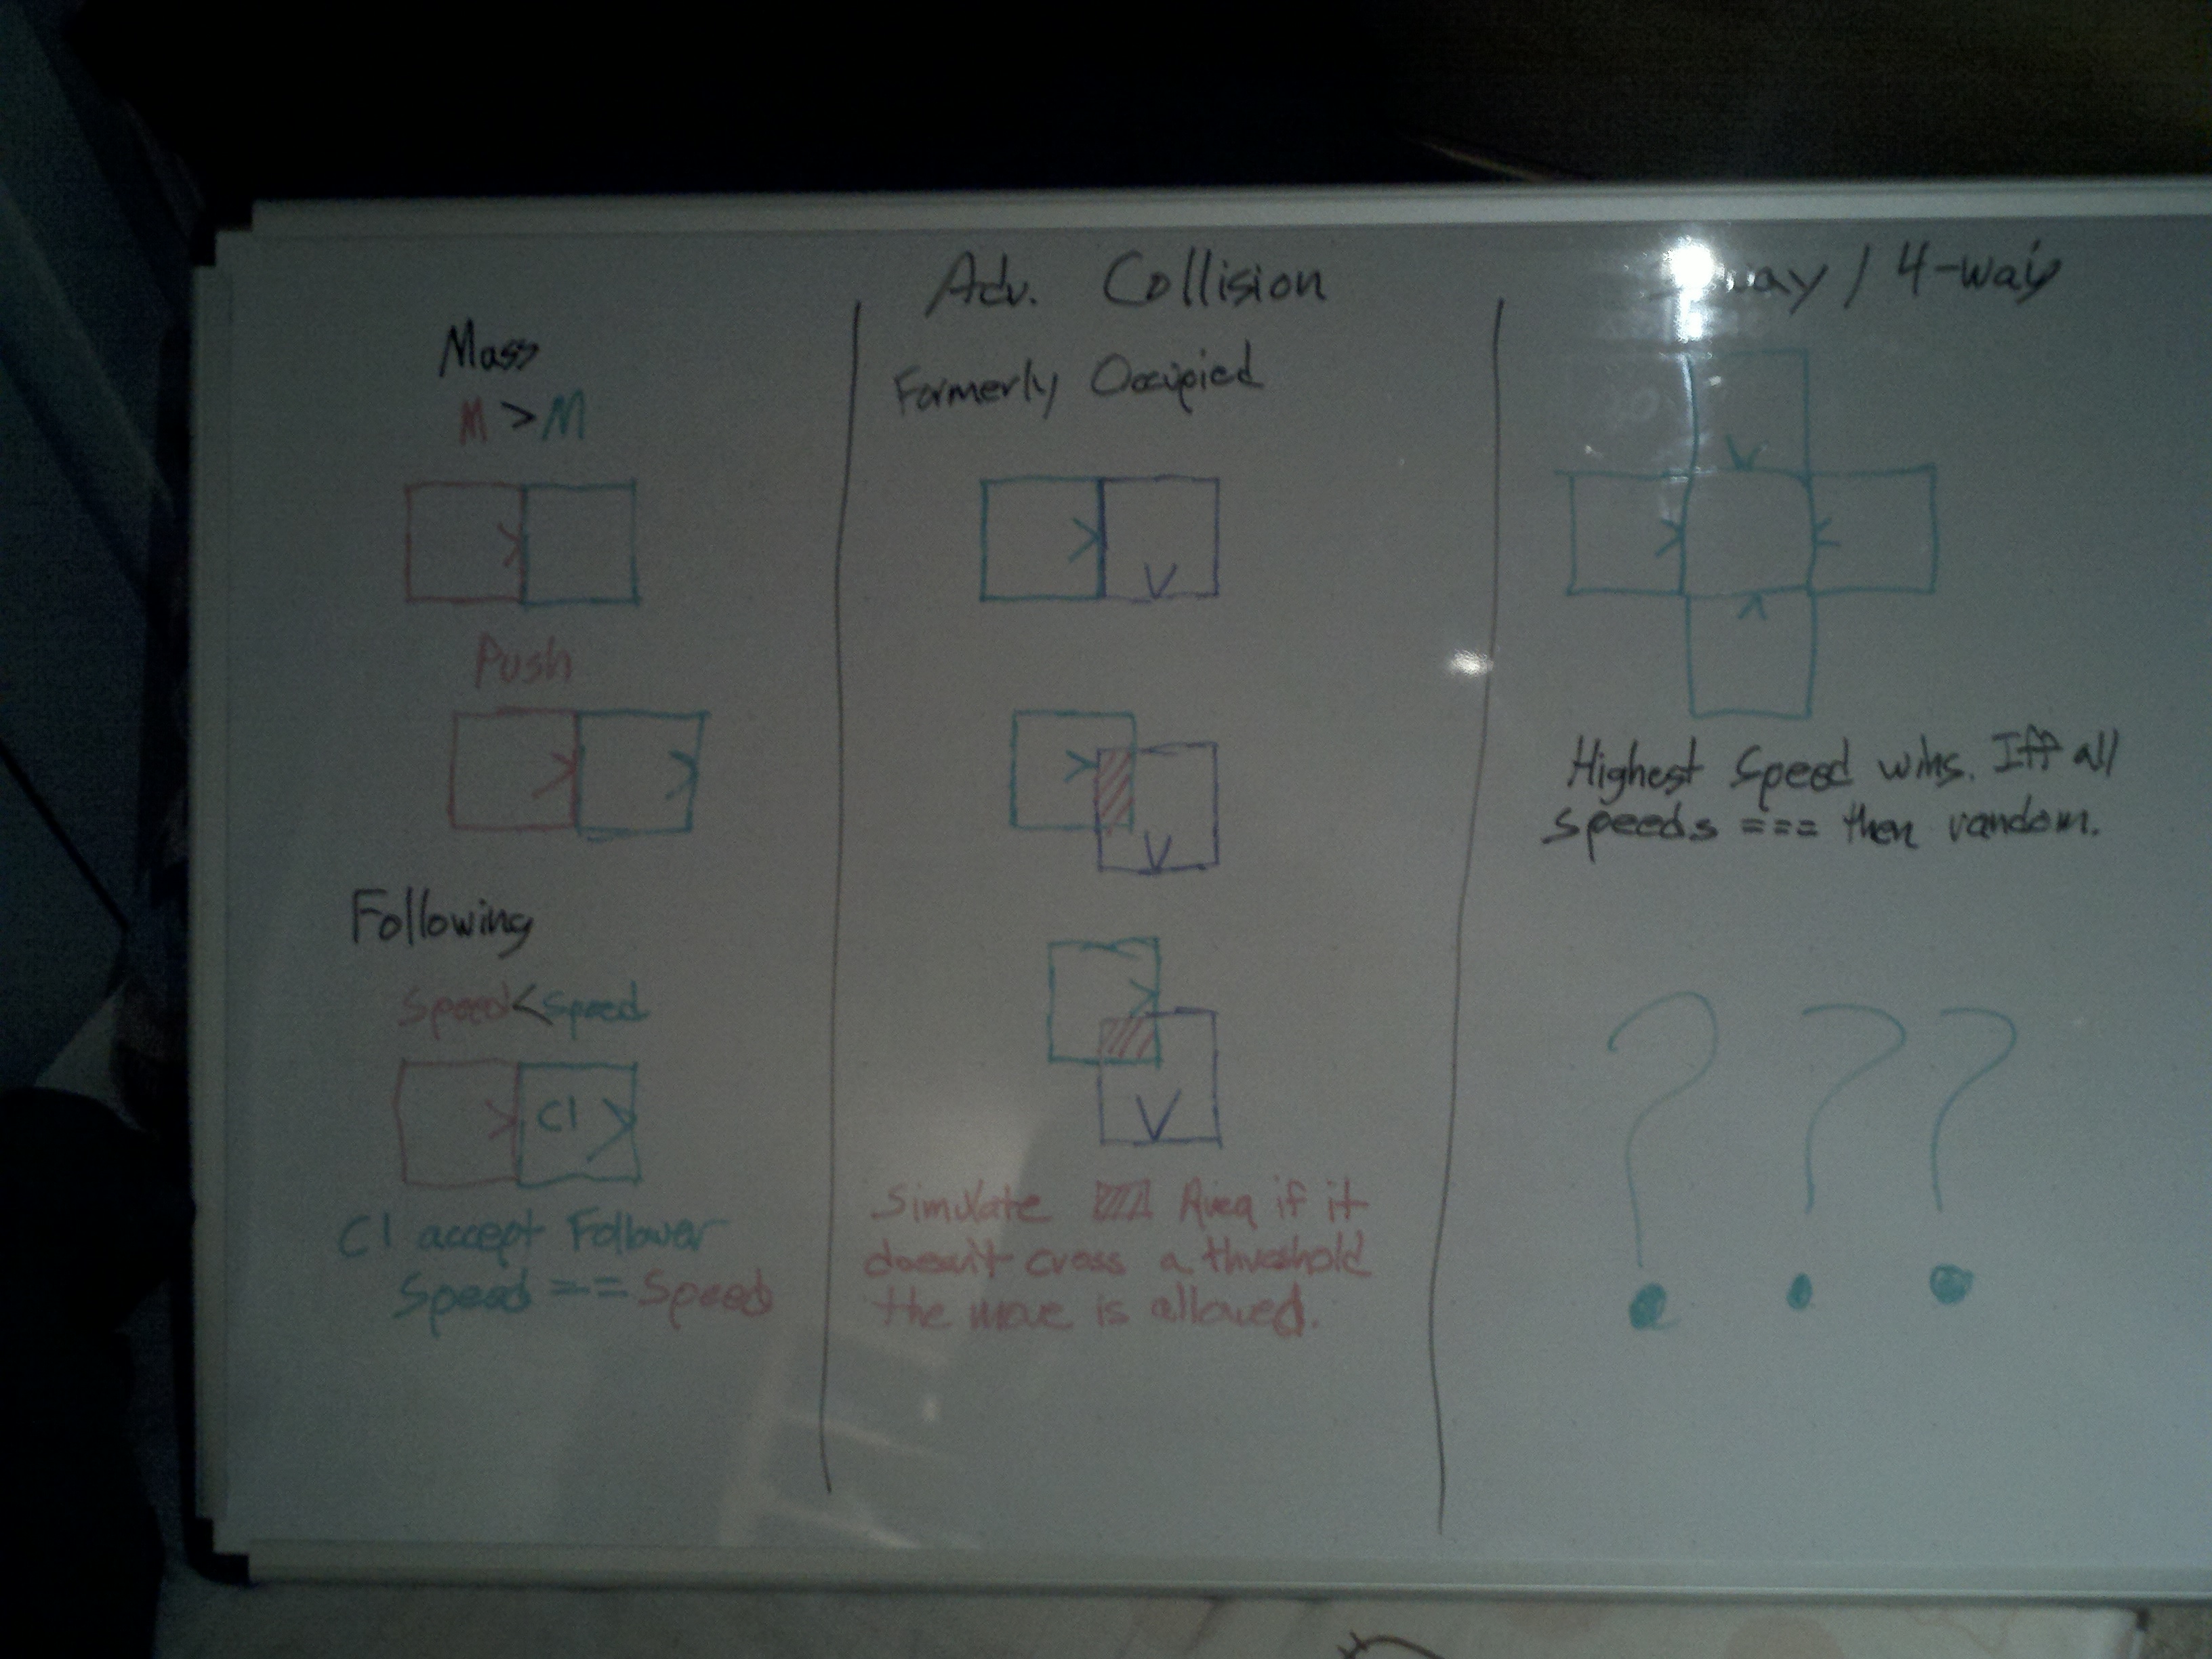 Adv. Collision
Mass
M > M
Push
Following
Speed < Speed
C1
C1 accept Follower
Speed == Speed
Formerly Occupied
Simulate Area if it
doesn't cross a threshold
the move is allowed.
way / 4-way
Highest Speed wins. Iff all
speeds === then random.
???